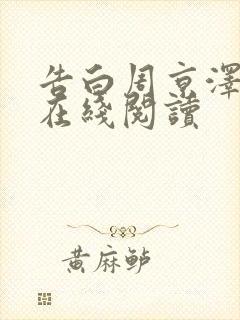 告白周京澤
在綫閱讀
黃麻鲈